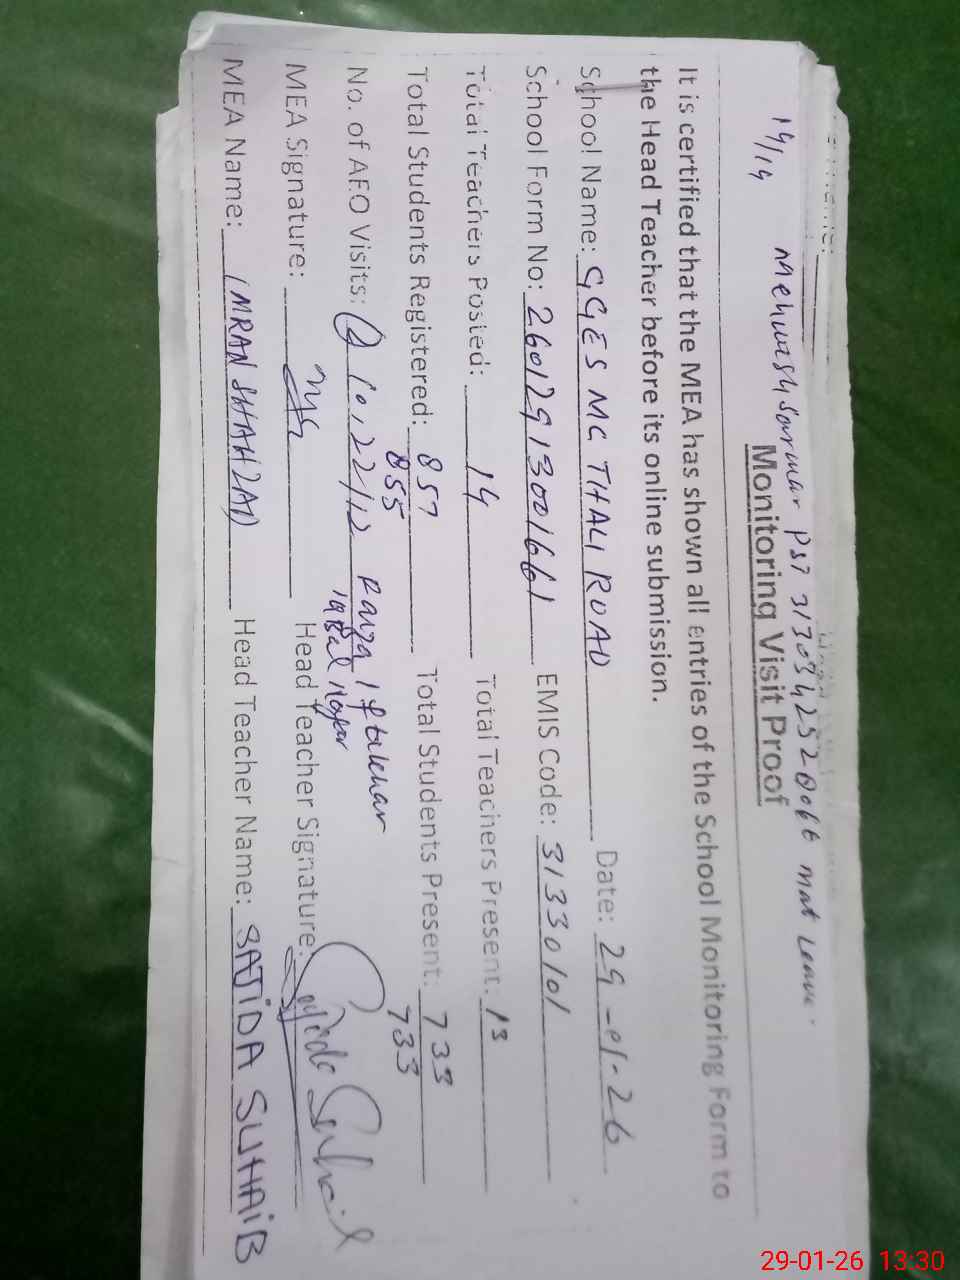 14/14 Mehwish Sarwar PST 31303 4252 0066 mat Leave.
Monitoring Visit Proof
It is certified that the MEA has shown all entries of the School Monitoring Form to
the Head Teacher before its online submission.
School Name: GGES MC THALI ROAD Date: 29-01-26
School Form No: 26012913001661 EMIS Code: 31330101
Total Teachers Posted: 14 Total Teachers Present: 13
Total Students Registered: 857 Total Students Present: 733
855 733
No. of AEO Visits: 22/12 Iftikhar
MEA Signature: Head Teacher Signature:
MEA Name: IMRAN SHAHZAD Head Teacher Name: SAJIDA SUHAIB
29-01-26 13:30